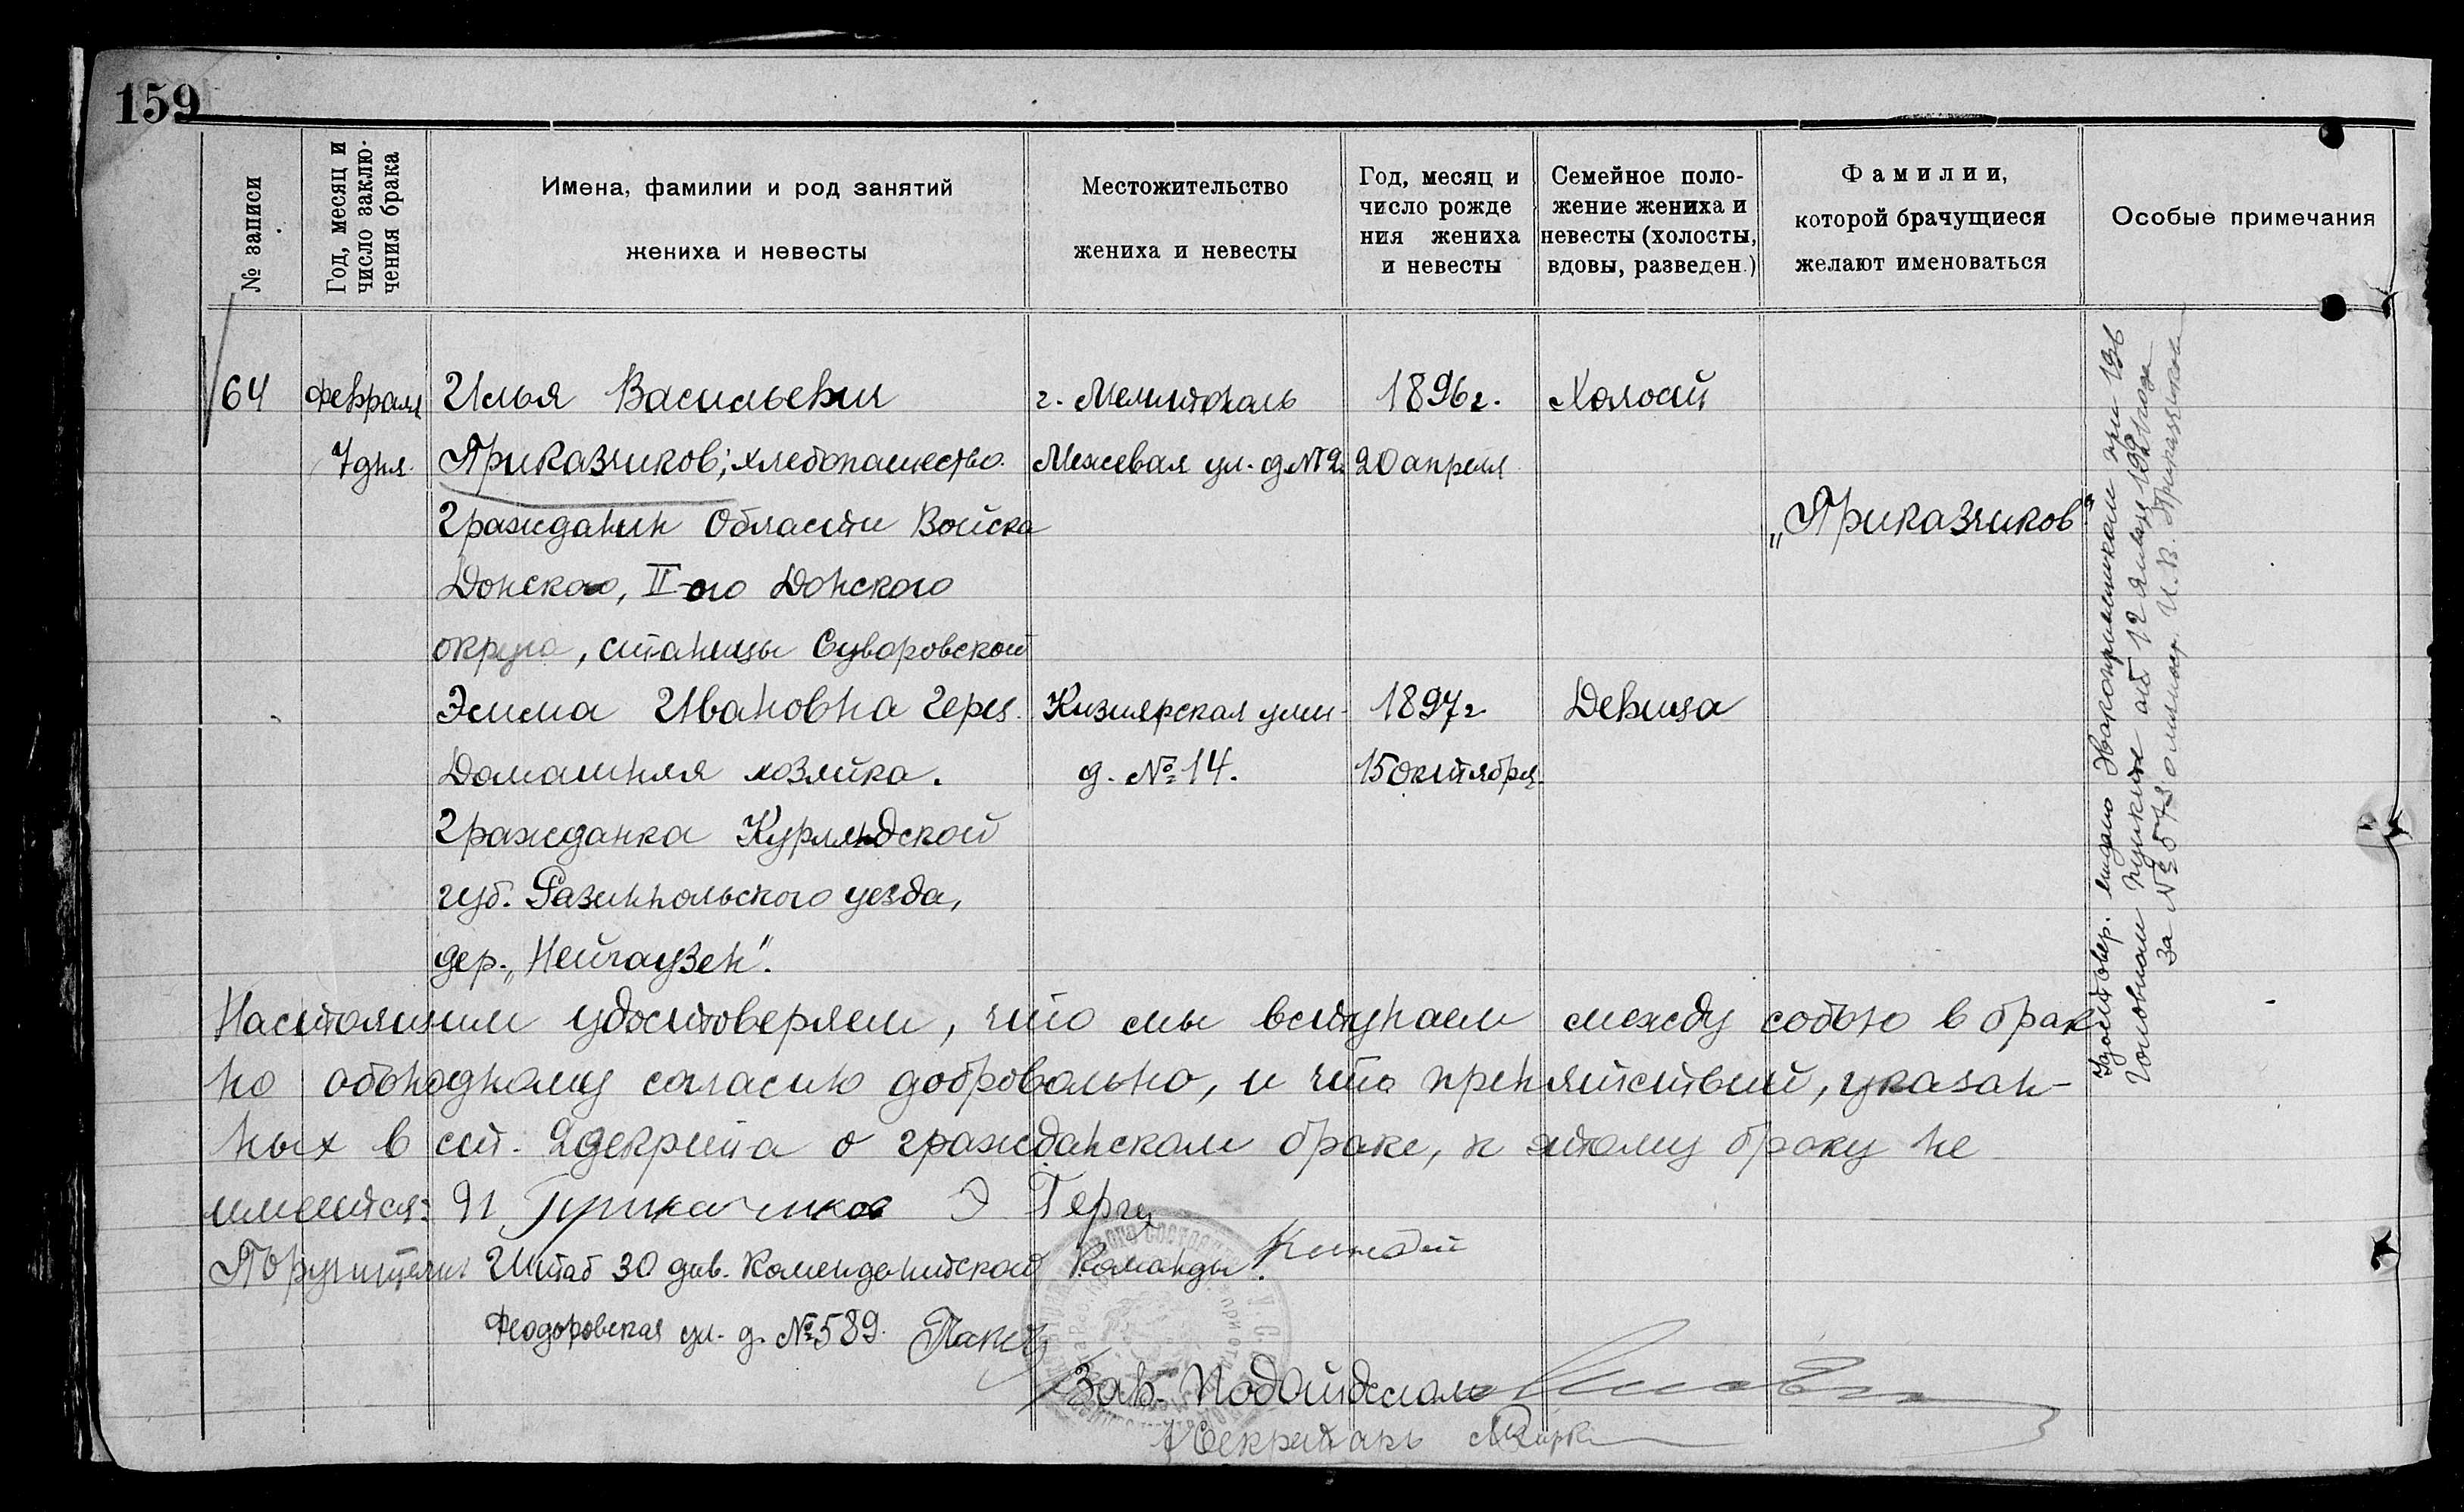 159
№ записи
Год, месяц и
число заклю-
чения брака
Имена, фамилии и род занятий
жениха и невесты
Местожительство
жениха и невесты
Год, месяц и
число рожде
ния жениха
и невесты
Семейное поло-
жение жениха и
невесты (холосты,
вдовы, разведен.)
Фамилии,
которой брачущиеся
желают именоваться
Особые примечания
64
Февраля
7 дня.
Илья Васильевич
Приказчиков; хлебопашество.
Гражданин Области Войска
Донского, II-ого Донского
округа, станицы Суворовской
г. Мелитополь
Межевая ул. д №2.
1896 г.
20 апреля
Холост
„Приказчиков"
Эмма Ивановна Герц.
Домашняя хозяйка.
Гражданка Курляндской
губ. Газинпольского уезда,
дер. „Нейгаузен".
Кизиярская улич-
д. №14.
1897 г
15 октября.
Девица
Удостовер. выдано Эвакоприемником при 136
Головном пункте от 12 января 1921 года
за №573 о личност. И. В. Приказчиков
Настоящим удостоверяем, что мы вступаем между собою в брак
по обоюдному согласию добровольно, и что препятствий, указан-
ных в ст. 2 декрета о гражданском браке, к этому браку не
имеется: И Приказчиков Э Герц
Поручители: Штаб 30 див. Комендантской Команды.
Феодоровская ул. д. №589.
Зав. Подотделом
Секретарь